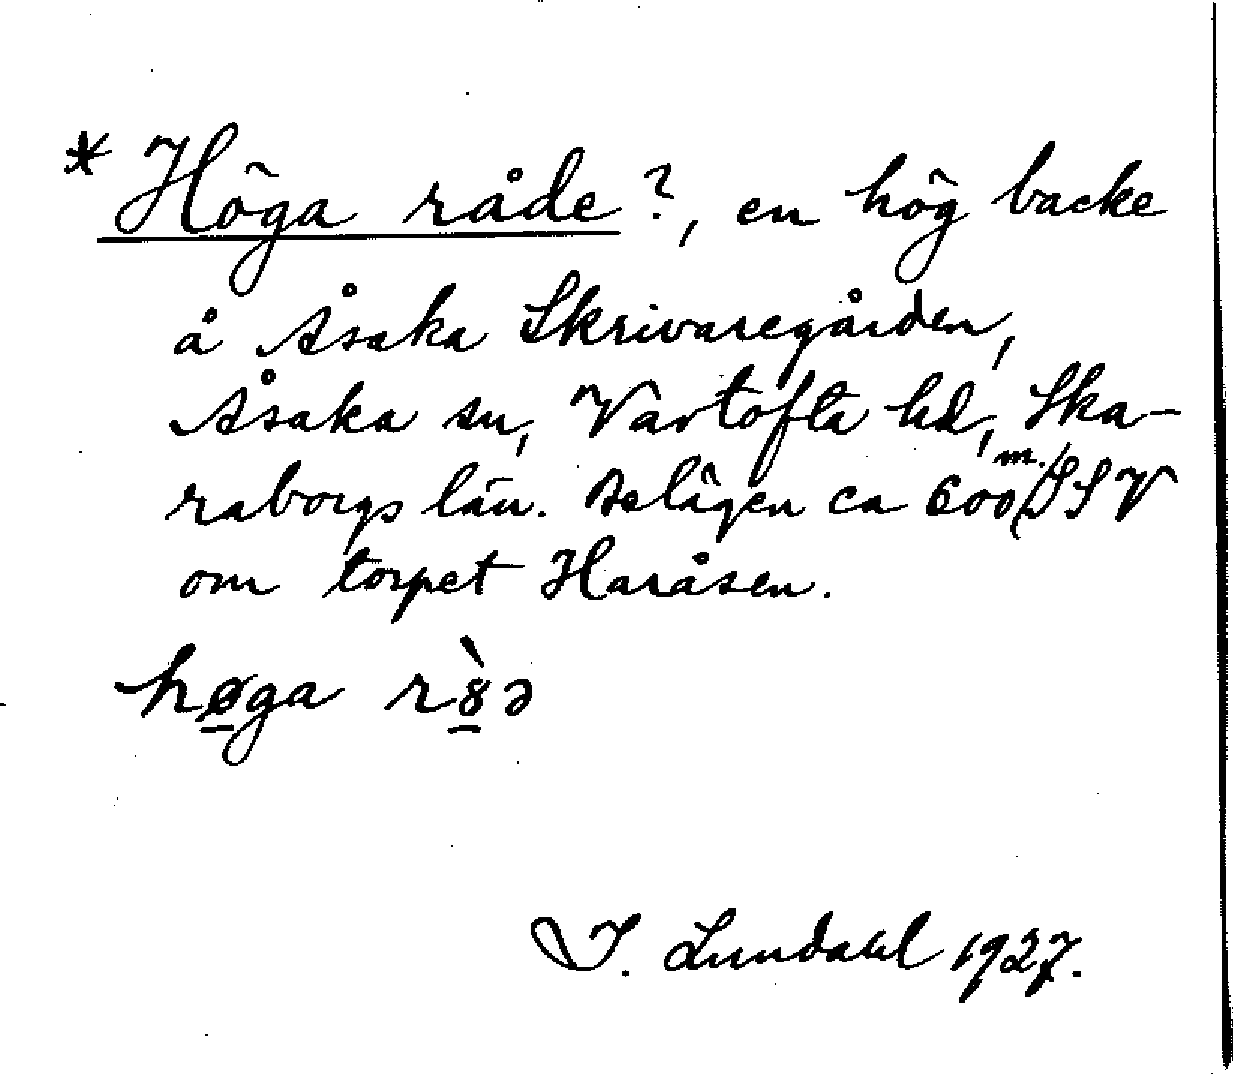 * Höga råde?, en hög backe
å Åsaka Skrivaregården,
Åsaka sn, Vartofta hd, Ska-
raborgs län. Belägen ca 600 m. SSV
om torpet Haråsen.
høga r8̀ə
I. Lundahl 1927.